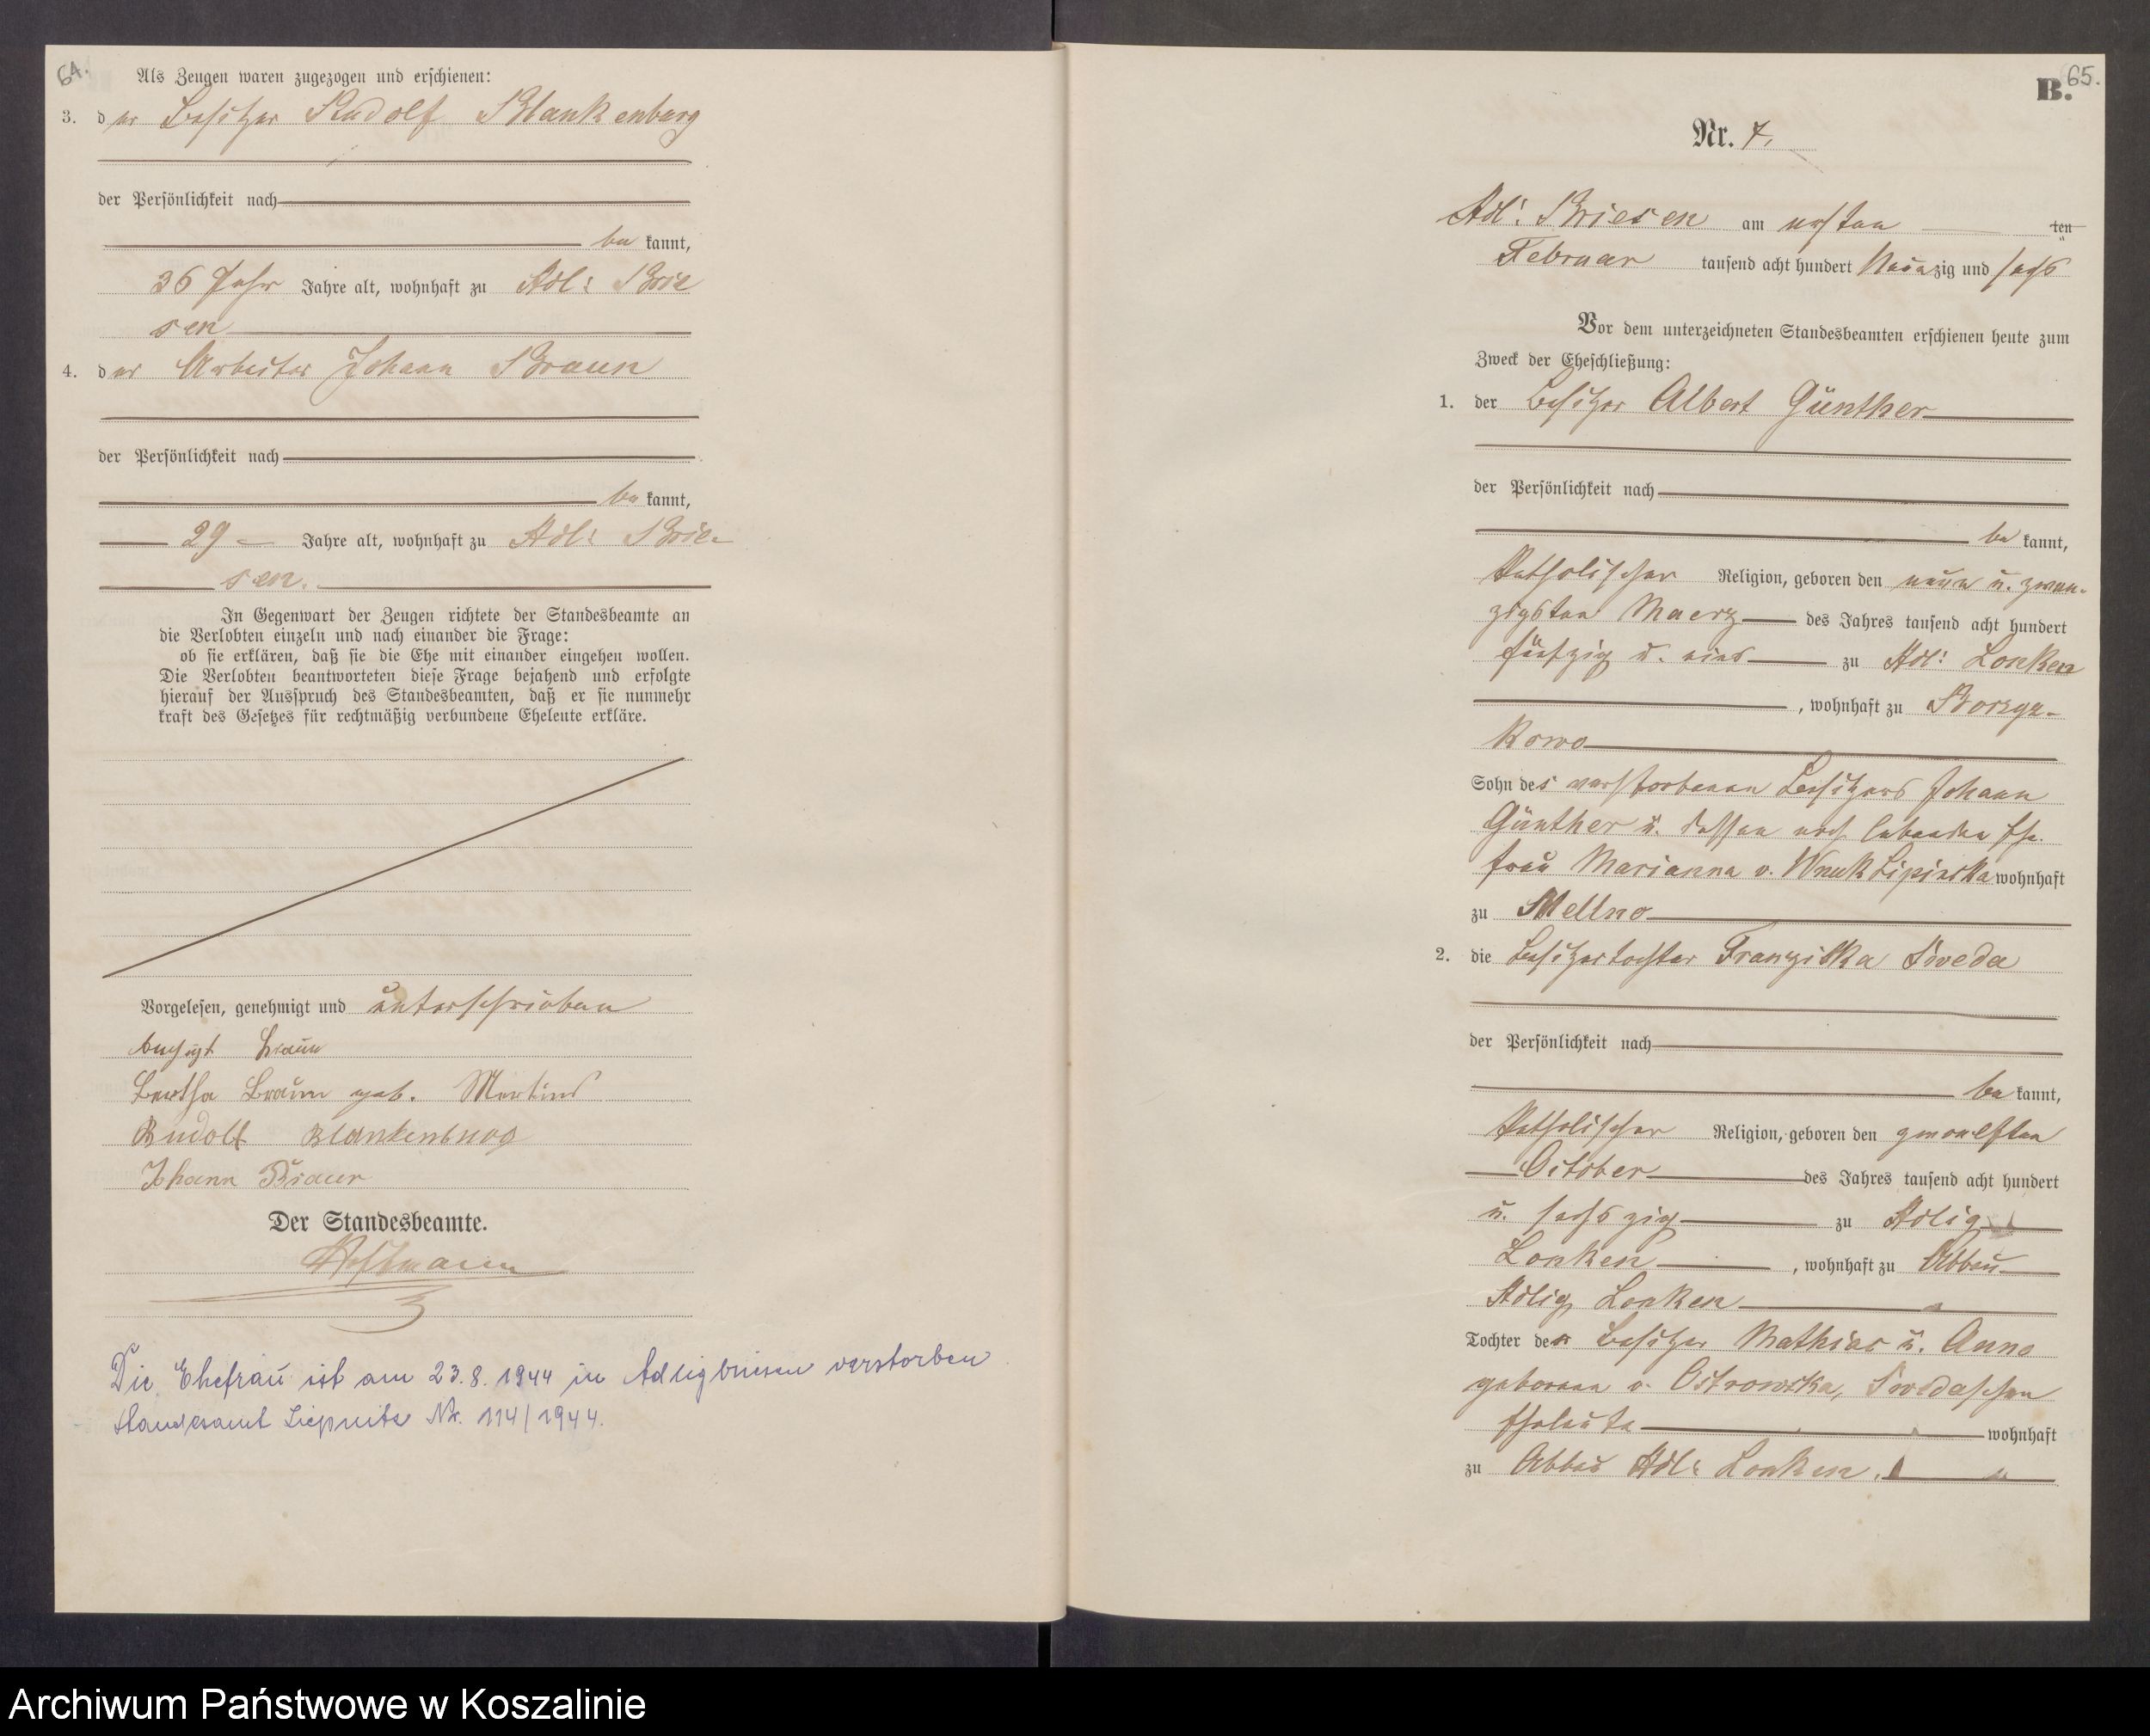 64.
Als Zeugen waren zugezogen und erschienen:
3. der Besitzer Rudolf Blankenburg
der Persönlichkeit nach
be kannt,
36 Jahr Jahre alt, wohnhaft zu Adl: Brie
sen
4. der Arbeiter Johann Braun
der Persönlichkeit nach
be kannt,
29 Jahre alt, wohnhaft zu Adl: Brie-
sen.
In Gegenwart der Zeugen richtete der Standesbeamte an
die Verlobten einzeln und nach einander die Frage:
ob sie erklären, daß sie die Ehe mit einander eingehen wollen.
Die Verlobten beantworteten diese Frage bejahend und erfolgte
hierauf der Ausspruch des Standesbeamten, daß er sie nunmehr
kraft des Gesetzes für rechtmäßig verbundene Eheleute erkläre.
Vorgelesen, genehmigt und unterschrieben
August Braun
Bertha Braun geb. Mertins
Rudolf Blankenburg
Johann Braun
Der Standesbeamte.
Die Ehefrau ist am 23.8.1944 in Adligbriesen verstorben
Standesamt Liepnitz Nr. 114/1944.
B. 65.
Nr. 7.
Adl: Briesen am ersten ten
Februar tausend acht hundert Neunzig und sechs
Vor dem unterzeichneten Standesbeamten erschienen heute zum
Zweck der Eheschließung:
1. der Besitzer Albert Günther
der Persönlichkeit nach
be kannt,
Katholischer Religion, geboren den neun u. zwan-
zigsten Maerz des Jahres tausend acht hundert
fünfzig u. eins zu Adl: Lonken
, wohnhaft zu Borzys-
kowo
Sohn des verstorbenen Besitzers Johann
Günther u. dessen noch lebenden Ehe-
frau Marianna v. Wnuk Lipinska wohnhaft
zu Mellno
2. die Besitzertochter Franziska Sweda
der Persönlichkeit nach
be kannt,
Katholischer Religion, geboren den zwoelften
October des Jahres tausend acht hundert
u. sechszig zu Adlig
Lonken , wohnhaft zu Abbau
Adlig Lonken
Tochter der Besitzer Mathias u. Anna
geborene v. Ostrowska, Swedaschen
Eheleute wohnhaft
zu Abbau Adl: Lonken.
Archiwum Państwowe w Koszalinie